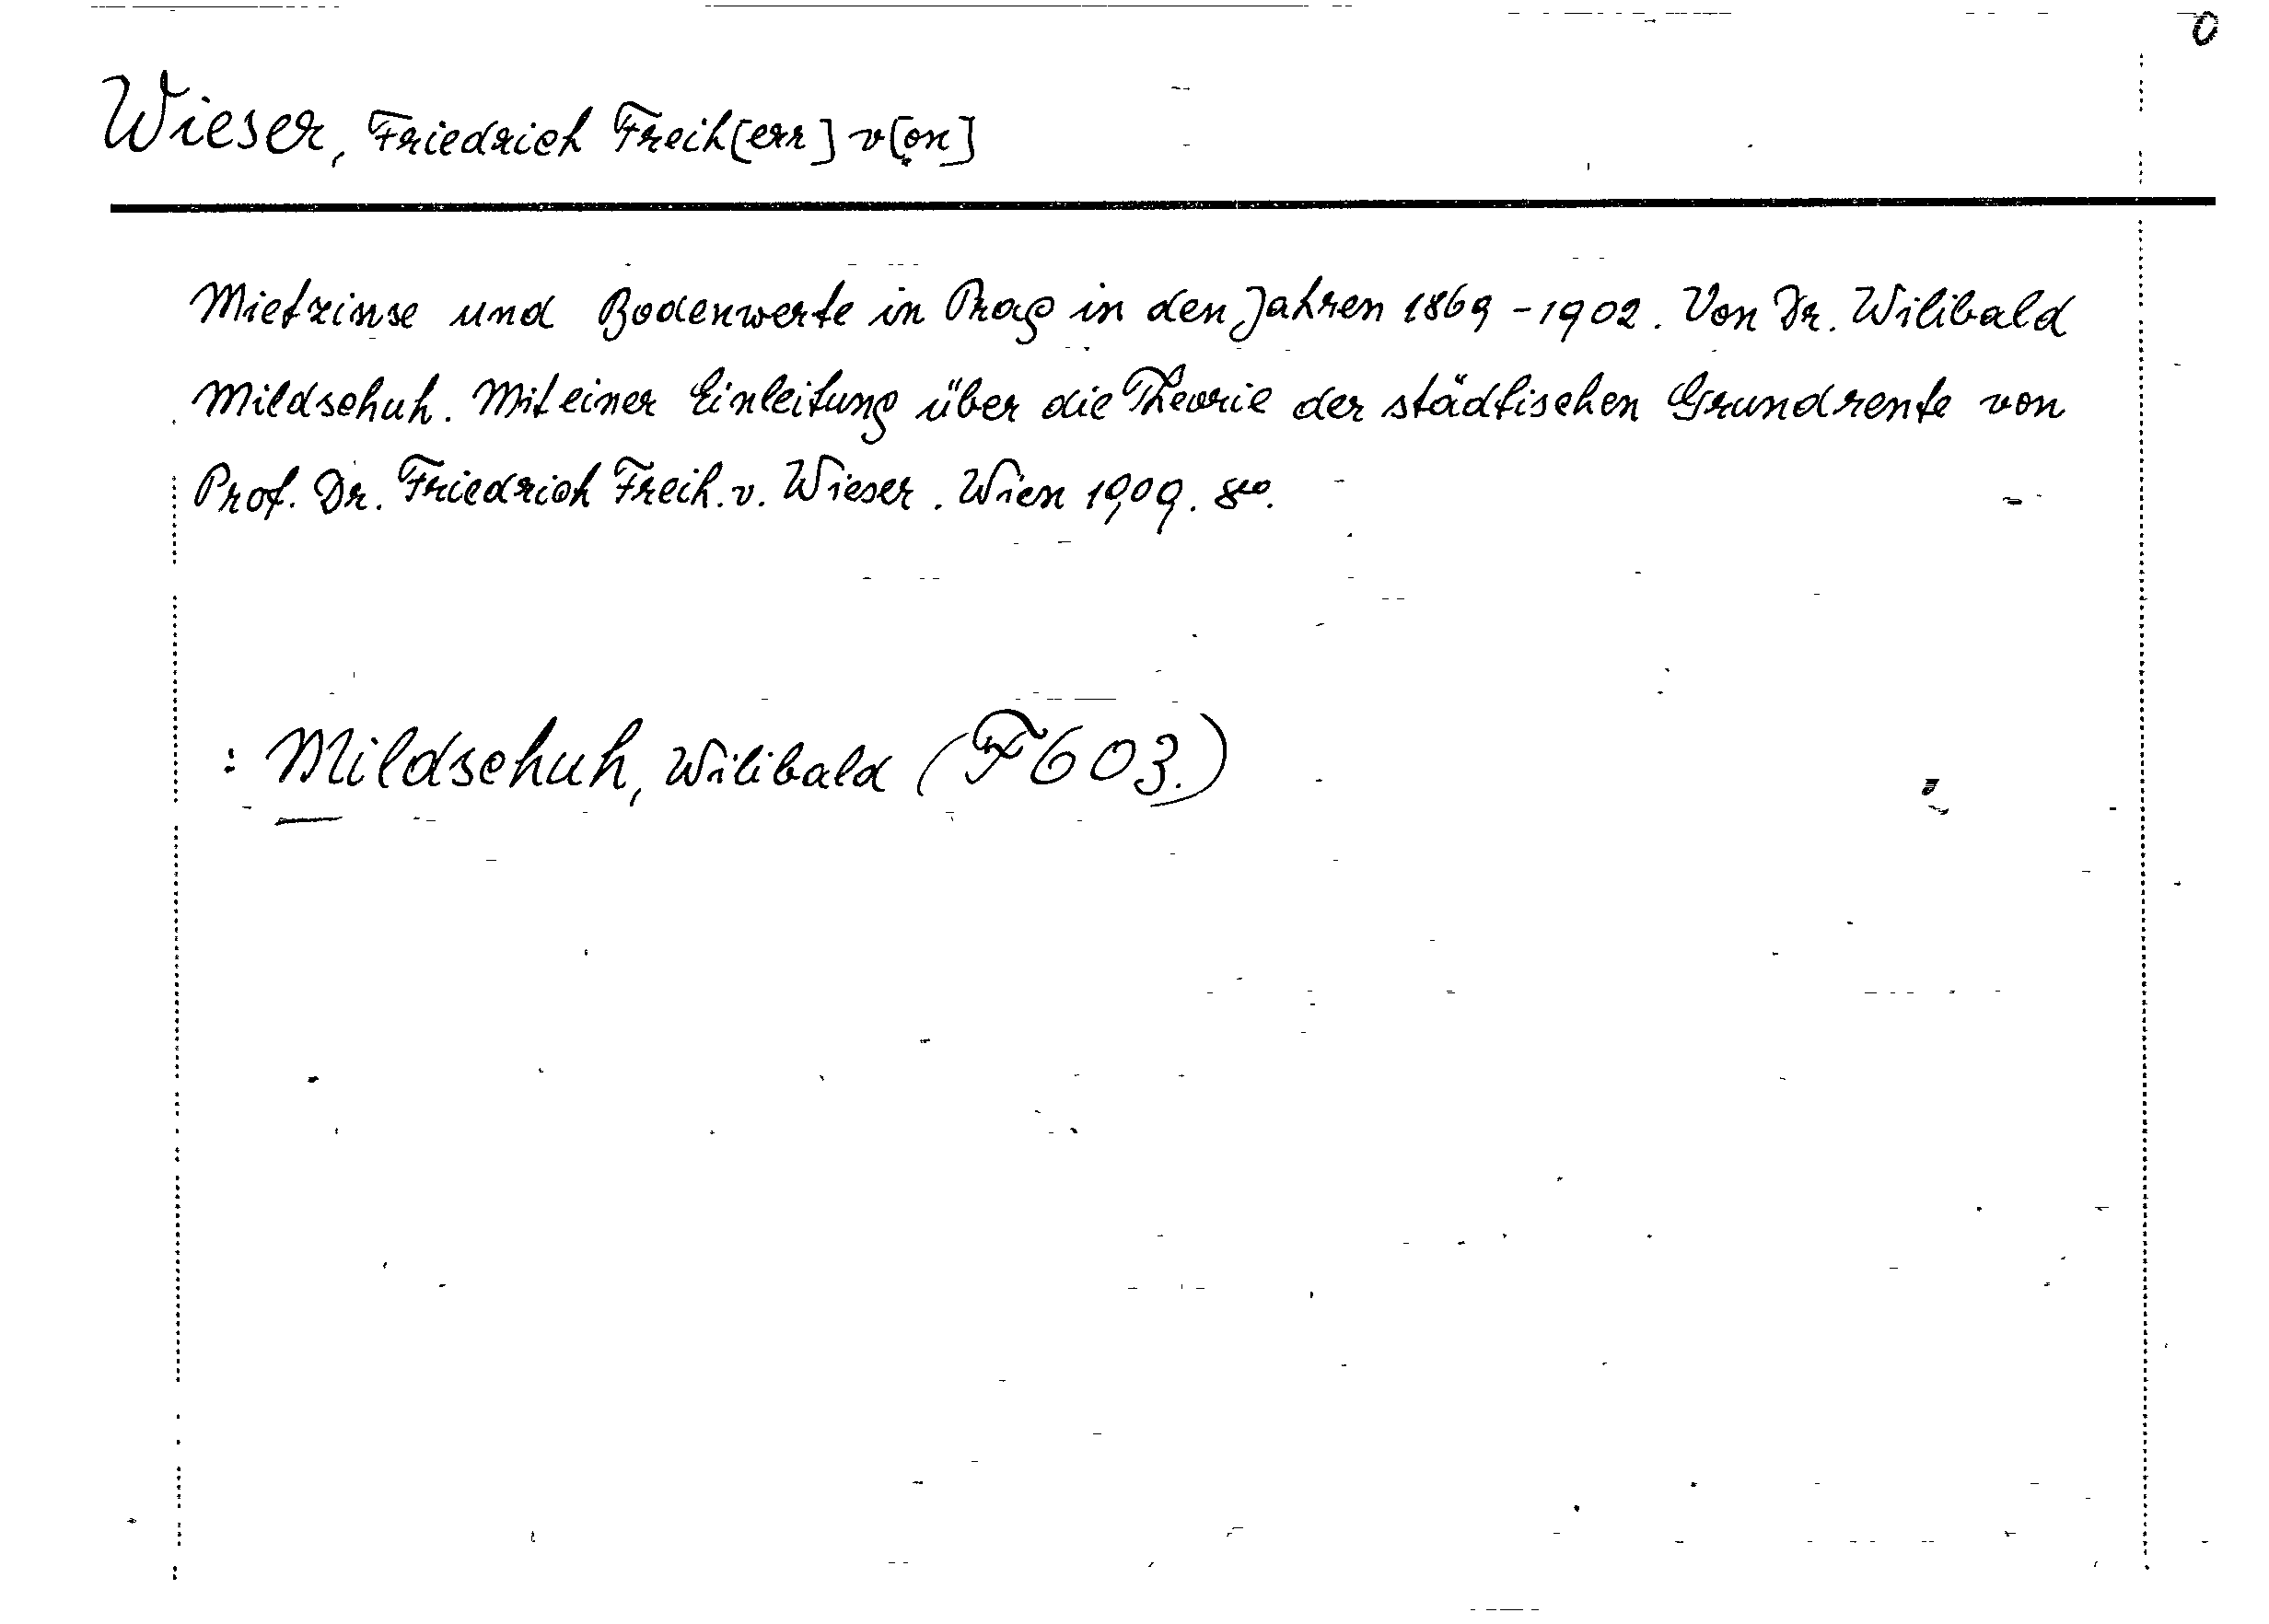 0
Wieser, Friedrich Freih[err] v[on]
Mietzinse und Bodenwerte in Prag in den Jahren 1869-1902. Von Dr. Wilibald
Mildschuh. Mit einer Einleitung über die Theorie der städtischen Grundrente von
Prof. Dr. Friedrich Freih. v. Wieser. Wien 1909. 8o.
: Mildschuh, Wilibald (F 603.)